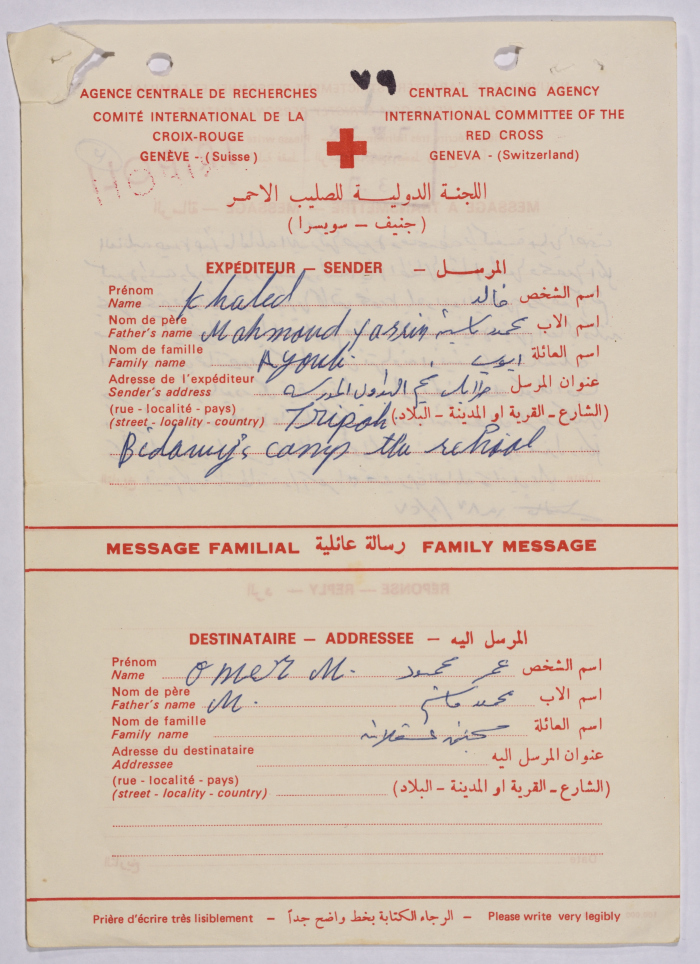 ٧٩
AGENCE CENTRALE DE RECHERCHES
COMITÉ INTERNATIONAL DE LA
CROIX-ROUGE
GENÈVE - (Suisse)
CENTRAL TRACING AGENCY
INTERNATIONAL COMMITTEE OF THE
RED CROSS
GENEVA - (Switzerland)
اللجنة الدولية للصليب الاحمر
(جنيف - سويسرا)
EXPÉDITEUR - SENDER - المرسل
Prénom
Name Khaled خالد اسم الشخص
Nom de père
Father's name Mahmoud Yassin محمد ياسين اسم الاب
Nom de famille
Family name Ayoub ايوب اسم العائلة
Adresse de l'expéditeur
Sender's address طرابلس عنوان المرسل
(rue - localité - pays)
(street - locality - country) Tripoli (الشارع - القرية او المدينة - البلاد)
camp the school
MESSAGE FAMILIAL رسالة عائلية FAMILY MESSAGE
DESTINATAIRE - ADDRESSEE - المرسل اليه
Prénom
Name Omer M. عمر محمود اسم الشخص
Nom de père
Father's name M. محمد اسم الاب
Nom de famille
Family name اسم العائلة
Adresse du destinataire
Addressee عنوان المرسل اليه
(rue - localité - pays)
(street - locality - country) (الشارع - القرية او المدينة - البلاد)
Prière d'écrire très lisiblement - الرجاء الكتابة بخط واضح جداً - Please write very legibly